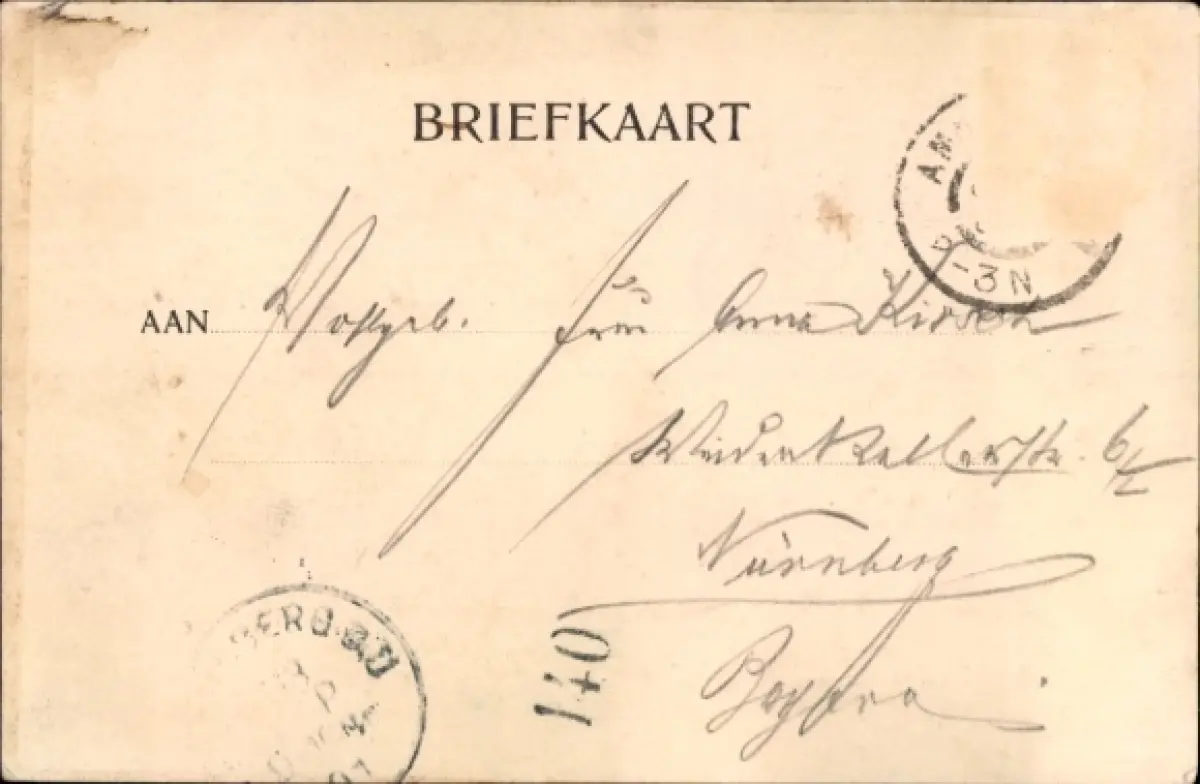 BRIEFKAART
AM
-3N
AAN Wohlgeb. Frau Anna Kirsch
Weidenkellerstr. 6/I
Nürnberg
Bayern
140
BERG.B